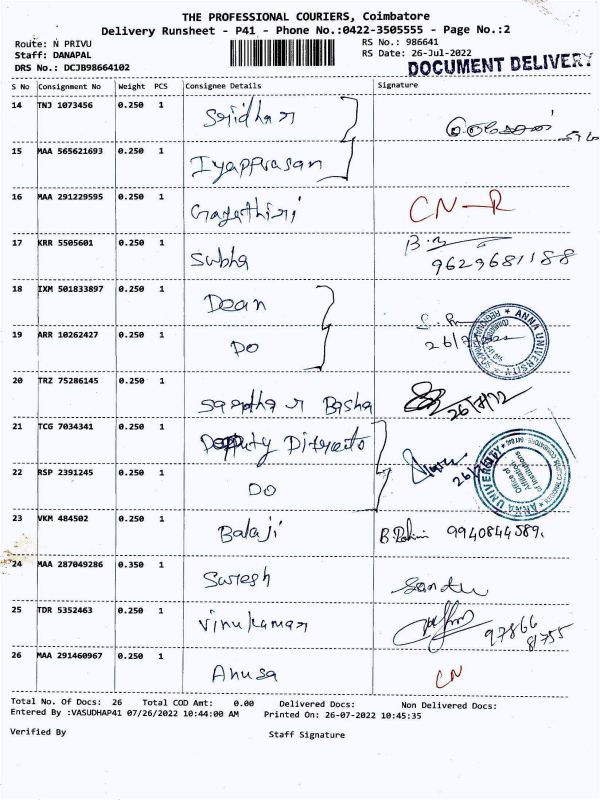 THE PROFESSIONAL COURIERS, Coimbatore
Delivery Runsheet - P41 - Phone No.:0422-3505555 - Page No.:2
Route: N PRIVU
RS No.: 986641
Staff: DANAPAL
RS Date: 26-Jul-2022
DOCUMENT DELIVERY
DRS No.: DCJB98664102
S No Consignment No Weight PCS Consignee Details Signature
14 TNJ 1073456 0.250 1 Sridhar
15 MAA 565621693 0.250 1 Iyapprasan
16 MAA 291229595 0.250 1 Gayathiri CN-R
17 KRR 5505601 0.250 1 Subha 9629681188
18 IXM 501833897 0.250 1 Dean
19 ARR 10262427 0.250 1 DO 26/7/2022
ANNA UNIVERSITY
20 TRZ 75286145 0.250 1 Basha 26/7/22
21 TCG 7034341 0.250 1 Deputy Directo
22 RSP 2391245 0.250 1 DO
ANNA UNIVERSITY
Office of
Affiliation
of Institutions
23 VKM 484502 0.250 1 Balaji 9940844589.
24 MAA 287049286 0.350 1 Suresh
25 TDR 5352463 0.250 1 Vinukumar 97866
81755
26 MAA 291460967 0.250 1 Anusa CN
Total No. Of Docs: 26 Total COD Amt: 0.00 Delivered Docs: Non Delivered Docs:
Entered By :VASUDHAP41 07/26/2022 10:44:00 AM Printed On: 26-07-2022 10:45:35
Verified By
Staff Signature